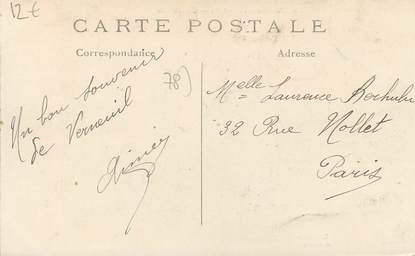 12€
CARTE POSTALE
Correspondance
Adresse
Un bon souvenir
de Verneuil
78)
Melle Laurence
32 Rue Nollet
Paris